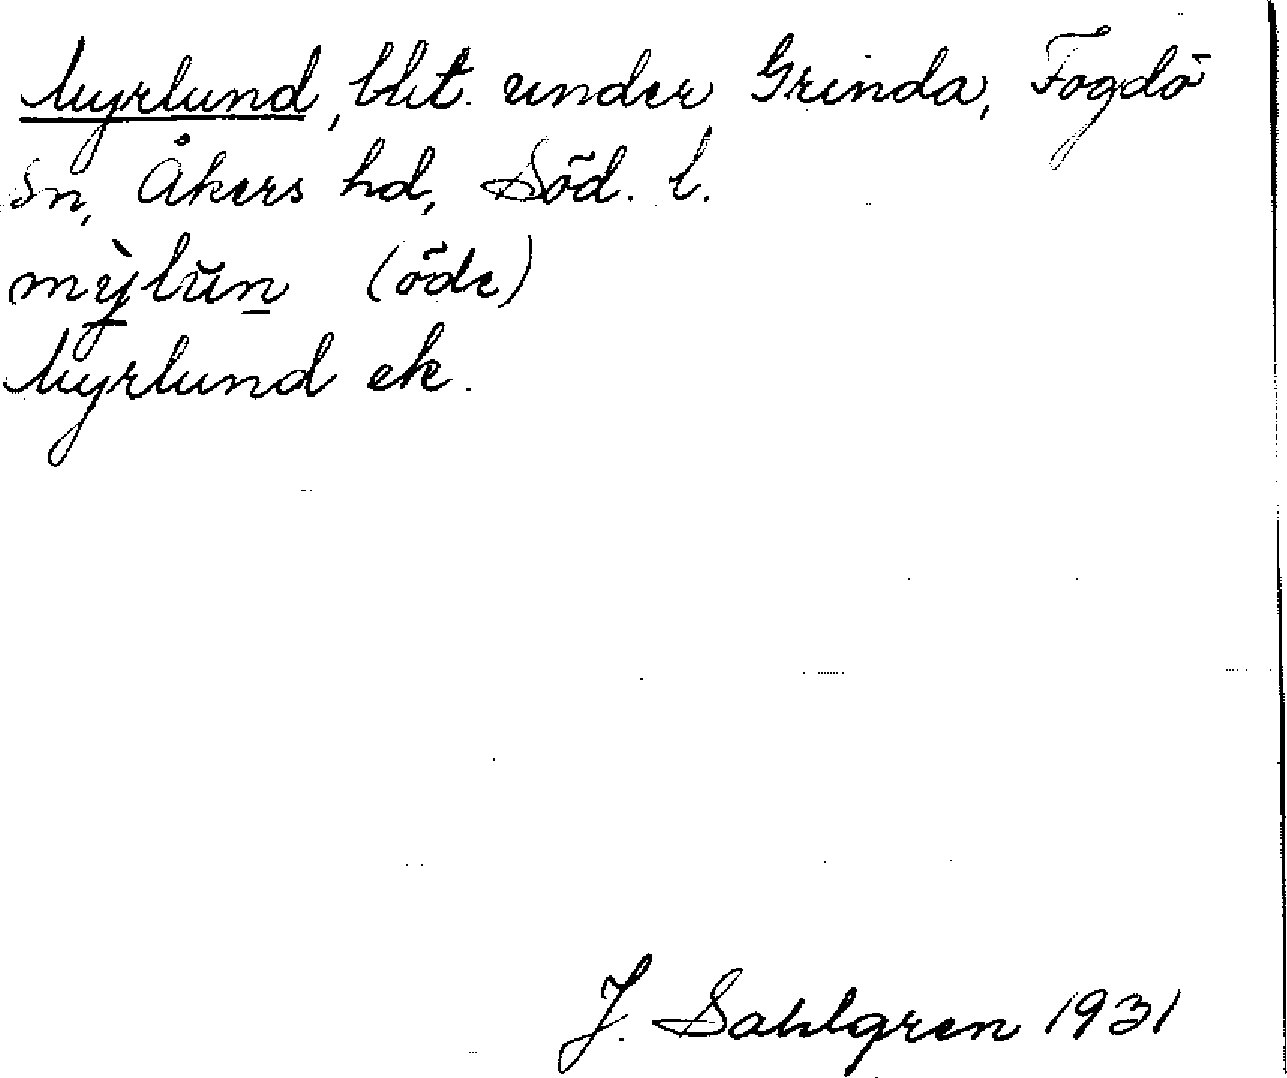 Myrlund, bht. under Grinda, Fogdö
sn, Åkers hd, Söd. l.
mỳlŭn (öde)
Myrlund ek.
J. Sahlgren 1931